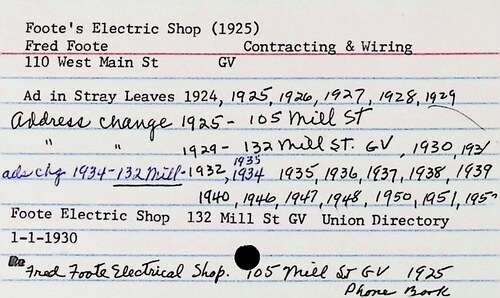 Foote's Electric Shop (1925)
Fred Foote Contracting & Wiring
110 West Main St GV
Ad in Stray Leaves 1924, 1925, 1926, 1927, 1928, 1929
Address change 1925 - 105 Mill St
" " 1929 - 132 Mill St. GV, 1930, 1931
1933
ads chg 1934 - 132 Mill - 1932, 1934 1935, 1936, 1937, 1938, 1939
1940, 1946, 1947, 1948, 1950, 1951,
Foote Electric Shop 132 Mill St GV Union Directory
1-1-1930
Fred Foote Electrical Shop. 105 Mill St GV 1925
Phone Book